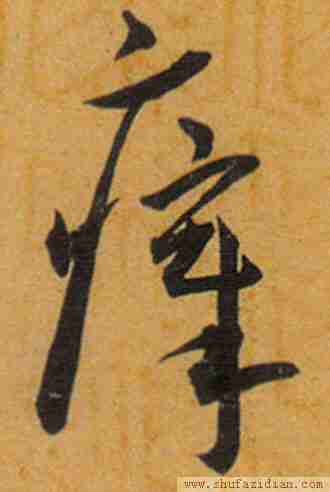 瘴
www.shufazidian.com